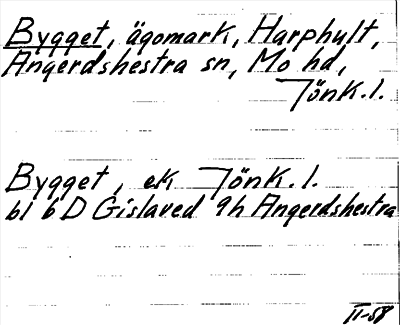 Bygget, ägomark, Harphult,
Angerdshestra sn, Mo hd,
Jönk.l.
Bygget, ek Jönk.l.
bl 6 D Gislaved 9h Angerdshestra
II-58